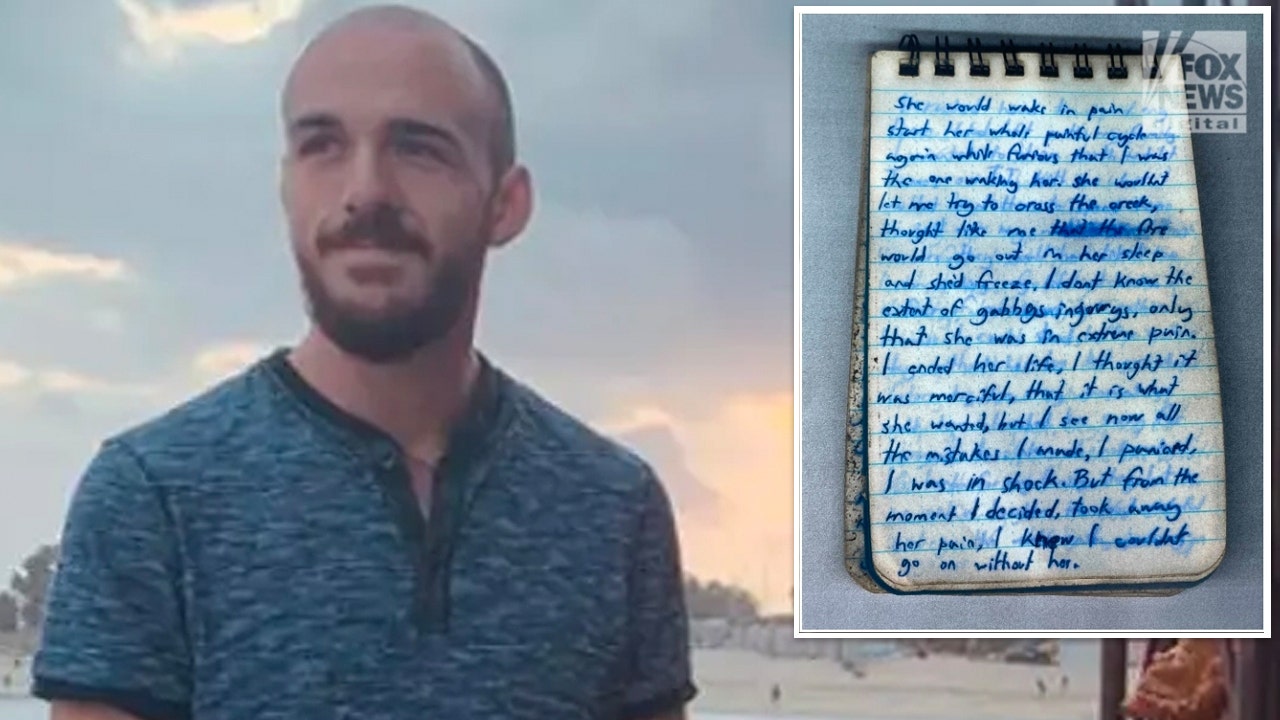 FOX
NEWS
Digital
She would wake in pain
start her whole painful cycle
again while furious that I was
the one waking her. she wouldnt
let me try to cross the creek,
thought like me that the fire
would go out in her sleep
and she'd freeze, I dont know the
extent of gabbys ingourys, only
that she was in extreme pain.
I ended her life, I thought it
was merciful, that it is what
she wanted, but I see now all
the mistakes I made, I paniced,
I was in shock. But from the
moment I decided, took away
her pain, I knew I couldnt
go on without her.